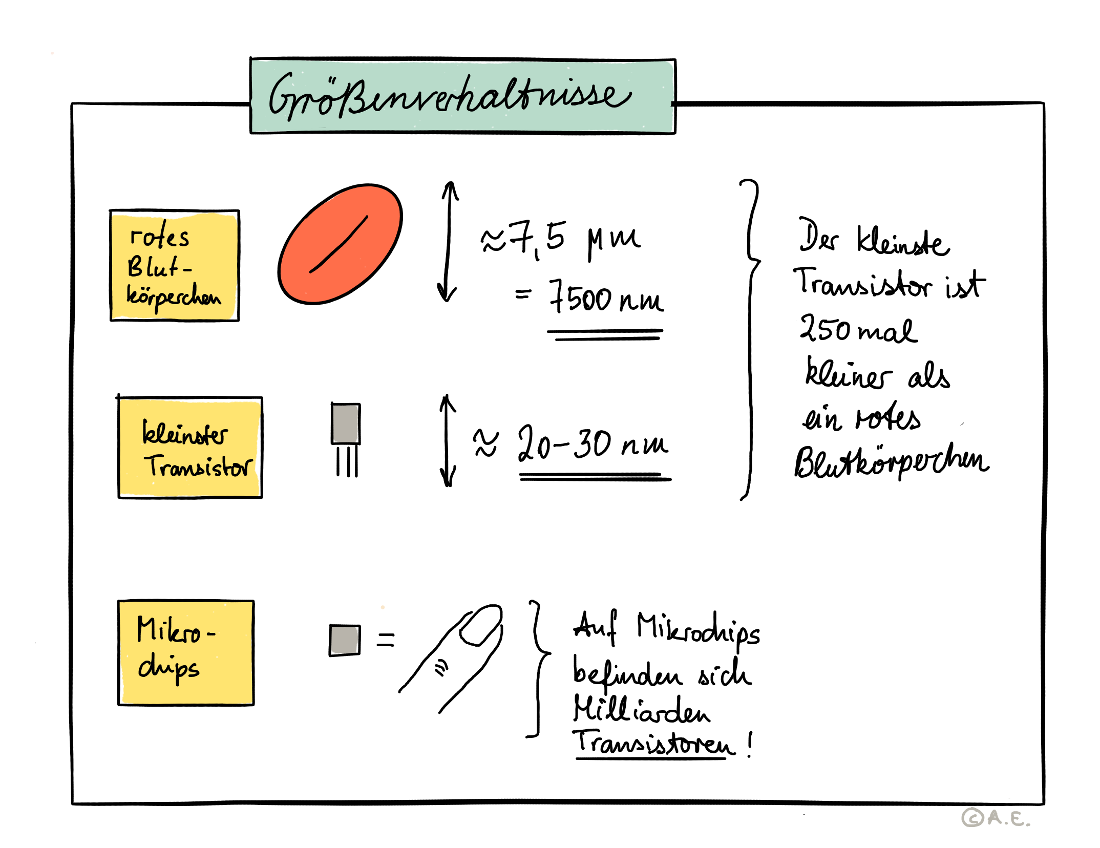 Größenverhältnisse
rotes
Blut-
körperchen
≈7,5 µm
= 7500 nm
kleinster
Transistor
≈ 20-30 nm
Der kleinste
Transistor ist
250 mal
kleiner als
ein rotes
Blutkörperchen
Mikro-
chips
=
Auf Mikrochips
befinden sich
Milliarden
Transistoren!
©A.E.